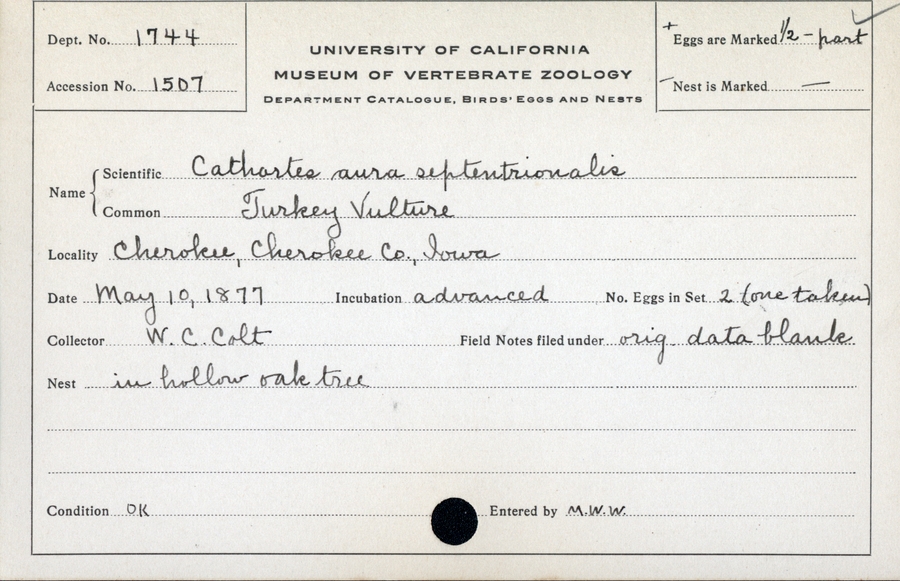 Dept. No. 1744
Accession No. 1507
UNIVERSITY OF CALIFORNIA
MUSEUM OF VERTEBRATE ZOOLOGY
DEPARTMENT CATALOGUE, BIRDS' EGGS AND NESTS
+ Eggs are Marked 1/2 - part
— Nest is Marked —
Name
Scientific Cathartes aura septentrionalis
Common Turkey Vulture
Locality Cherokee, Cherokee Co., Iowa
Date May 10, 1877 Incubation advanced No. Eggs in Set 2 (one taken)
Collector W. C. Colt Field Notes filed under orig data blank
Nest in hollow oak tree
Condition OK Entered by M.W.W.